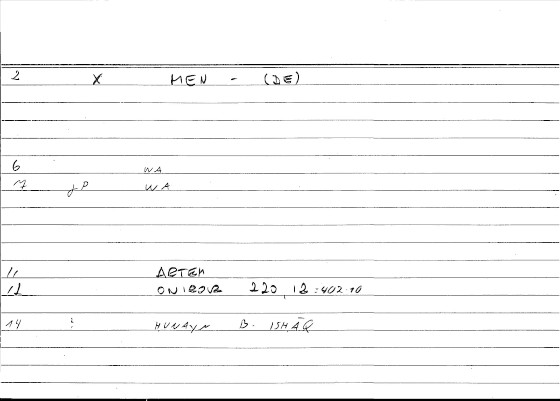 2 X MEN - (DE)
6 WA
7 gP WA
11 ARTEM
12 ONIROCR 220, 12 : 402.10
14 : HUNAYN B. ISHĀQ